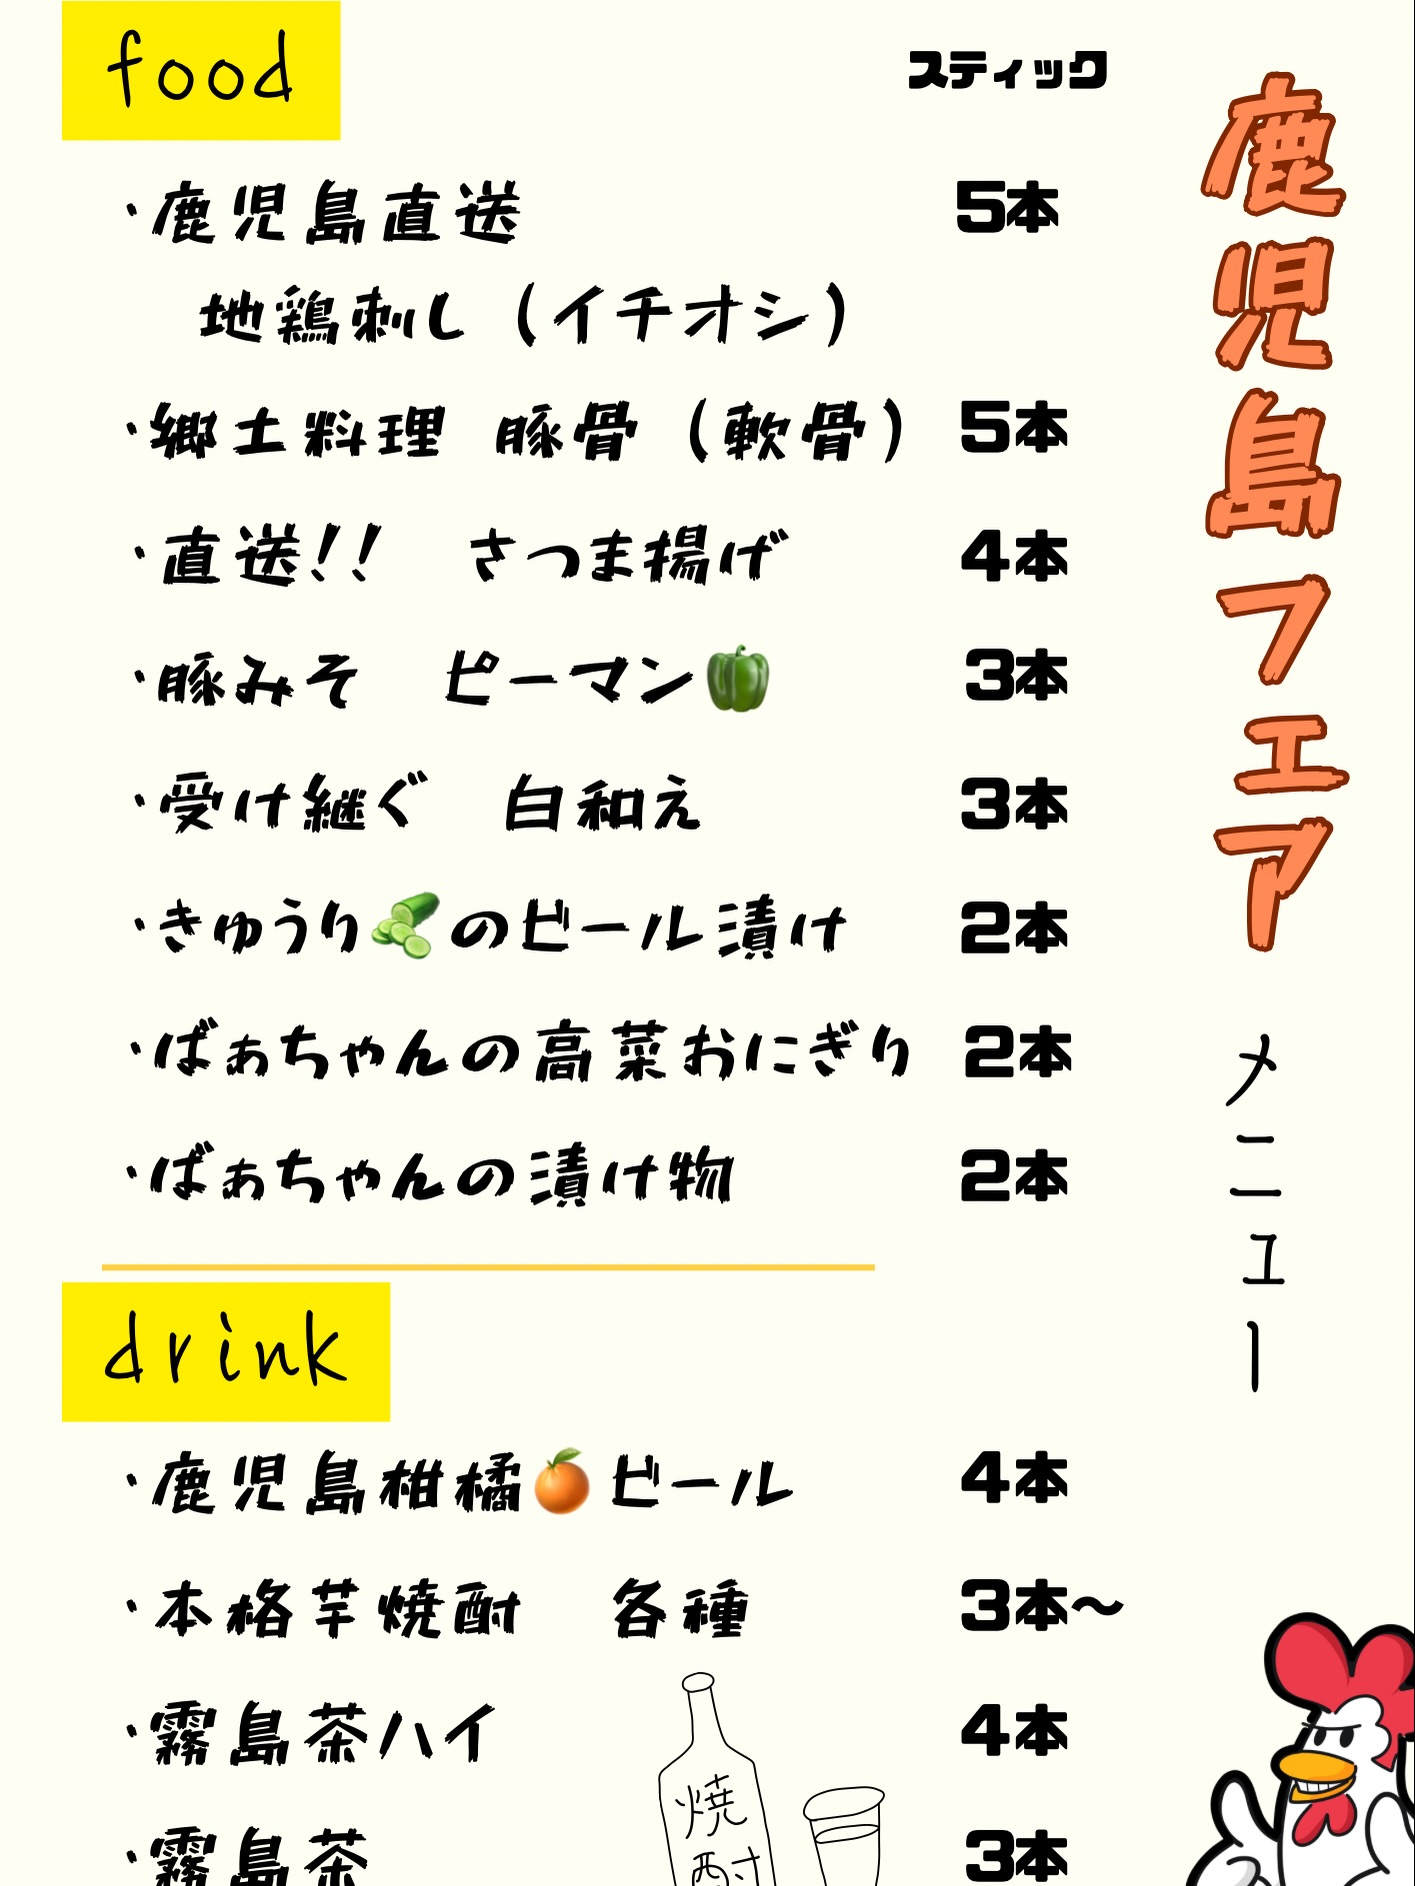 鹿児島フェア メニュー
food
スティック
・鹿児島直送 5本
地鶏刺し（イチオシ）
・郷土料理 豚骨（軟骨） 5本
・直送!! さつま揚げ 4本
・豚みそ ピーマン🫑 3本
・受け継ぐ 白和え 3本
・きゅうり🥒のビール漬け 2本
・ばぁちゃんの高菜おにぎり 2本
・ばぁちゃんの漬け物 2本
drink
・鹿児島柑橘🍊ビール 4本
・本格芋焼酎 各種 3本〜
・霧島茶ハイ 4本
・霧島茶 3本
焼酎